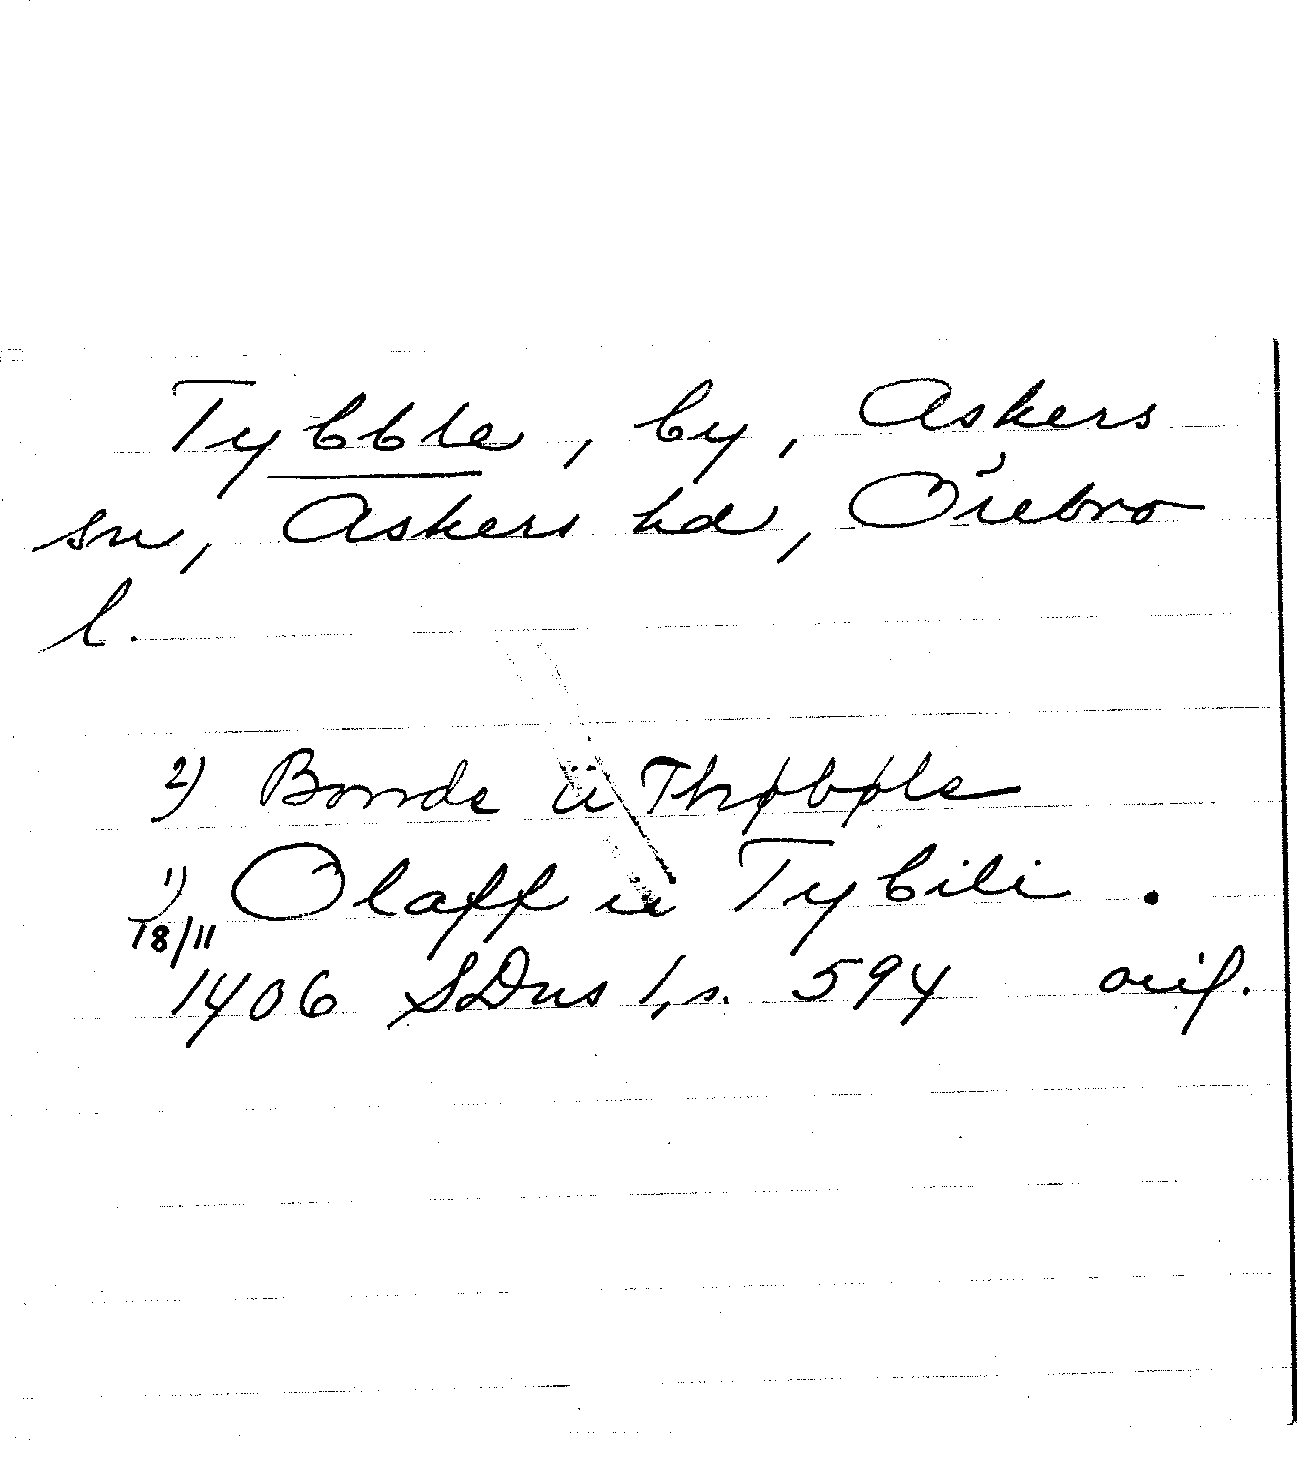 Tybble, by, Askers
sn, Askers hd, Örebro
l.
2) Bonde ii Thøbøle
1) Olaff ii Tybili .
18/11
1406 SDns 1, s. 594 orig.